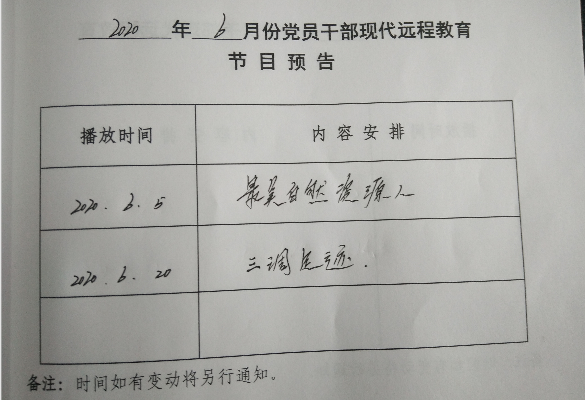 2020 年 6 月份党员干部现代远程教育
节目预告
播放时间 内容安排
2020.6.5 最美自然资源人
2020.6.20 三调足迹.
备注：时间如有变动将另行通知。